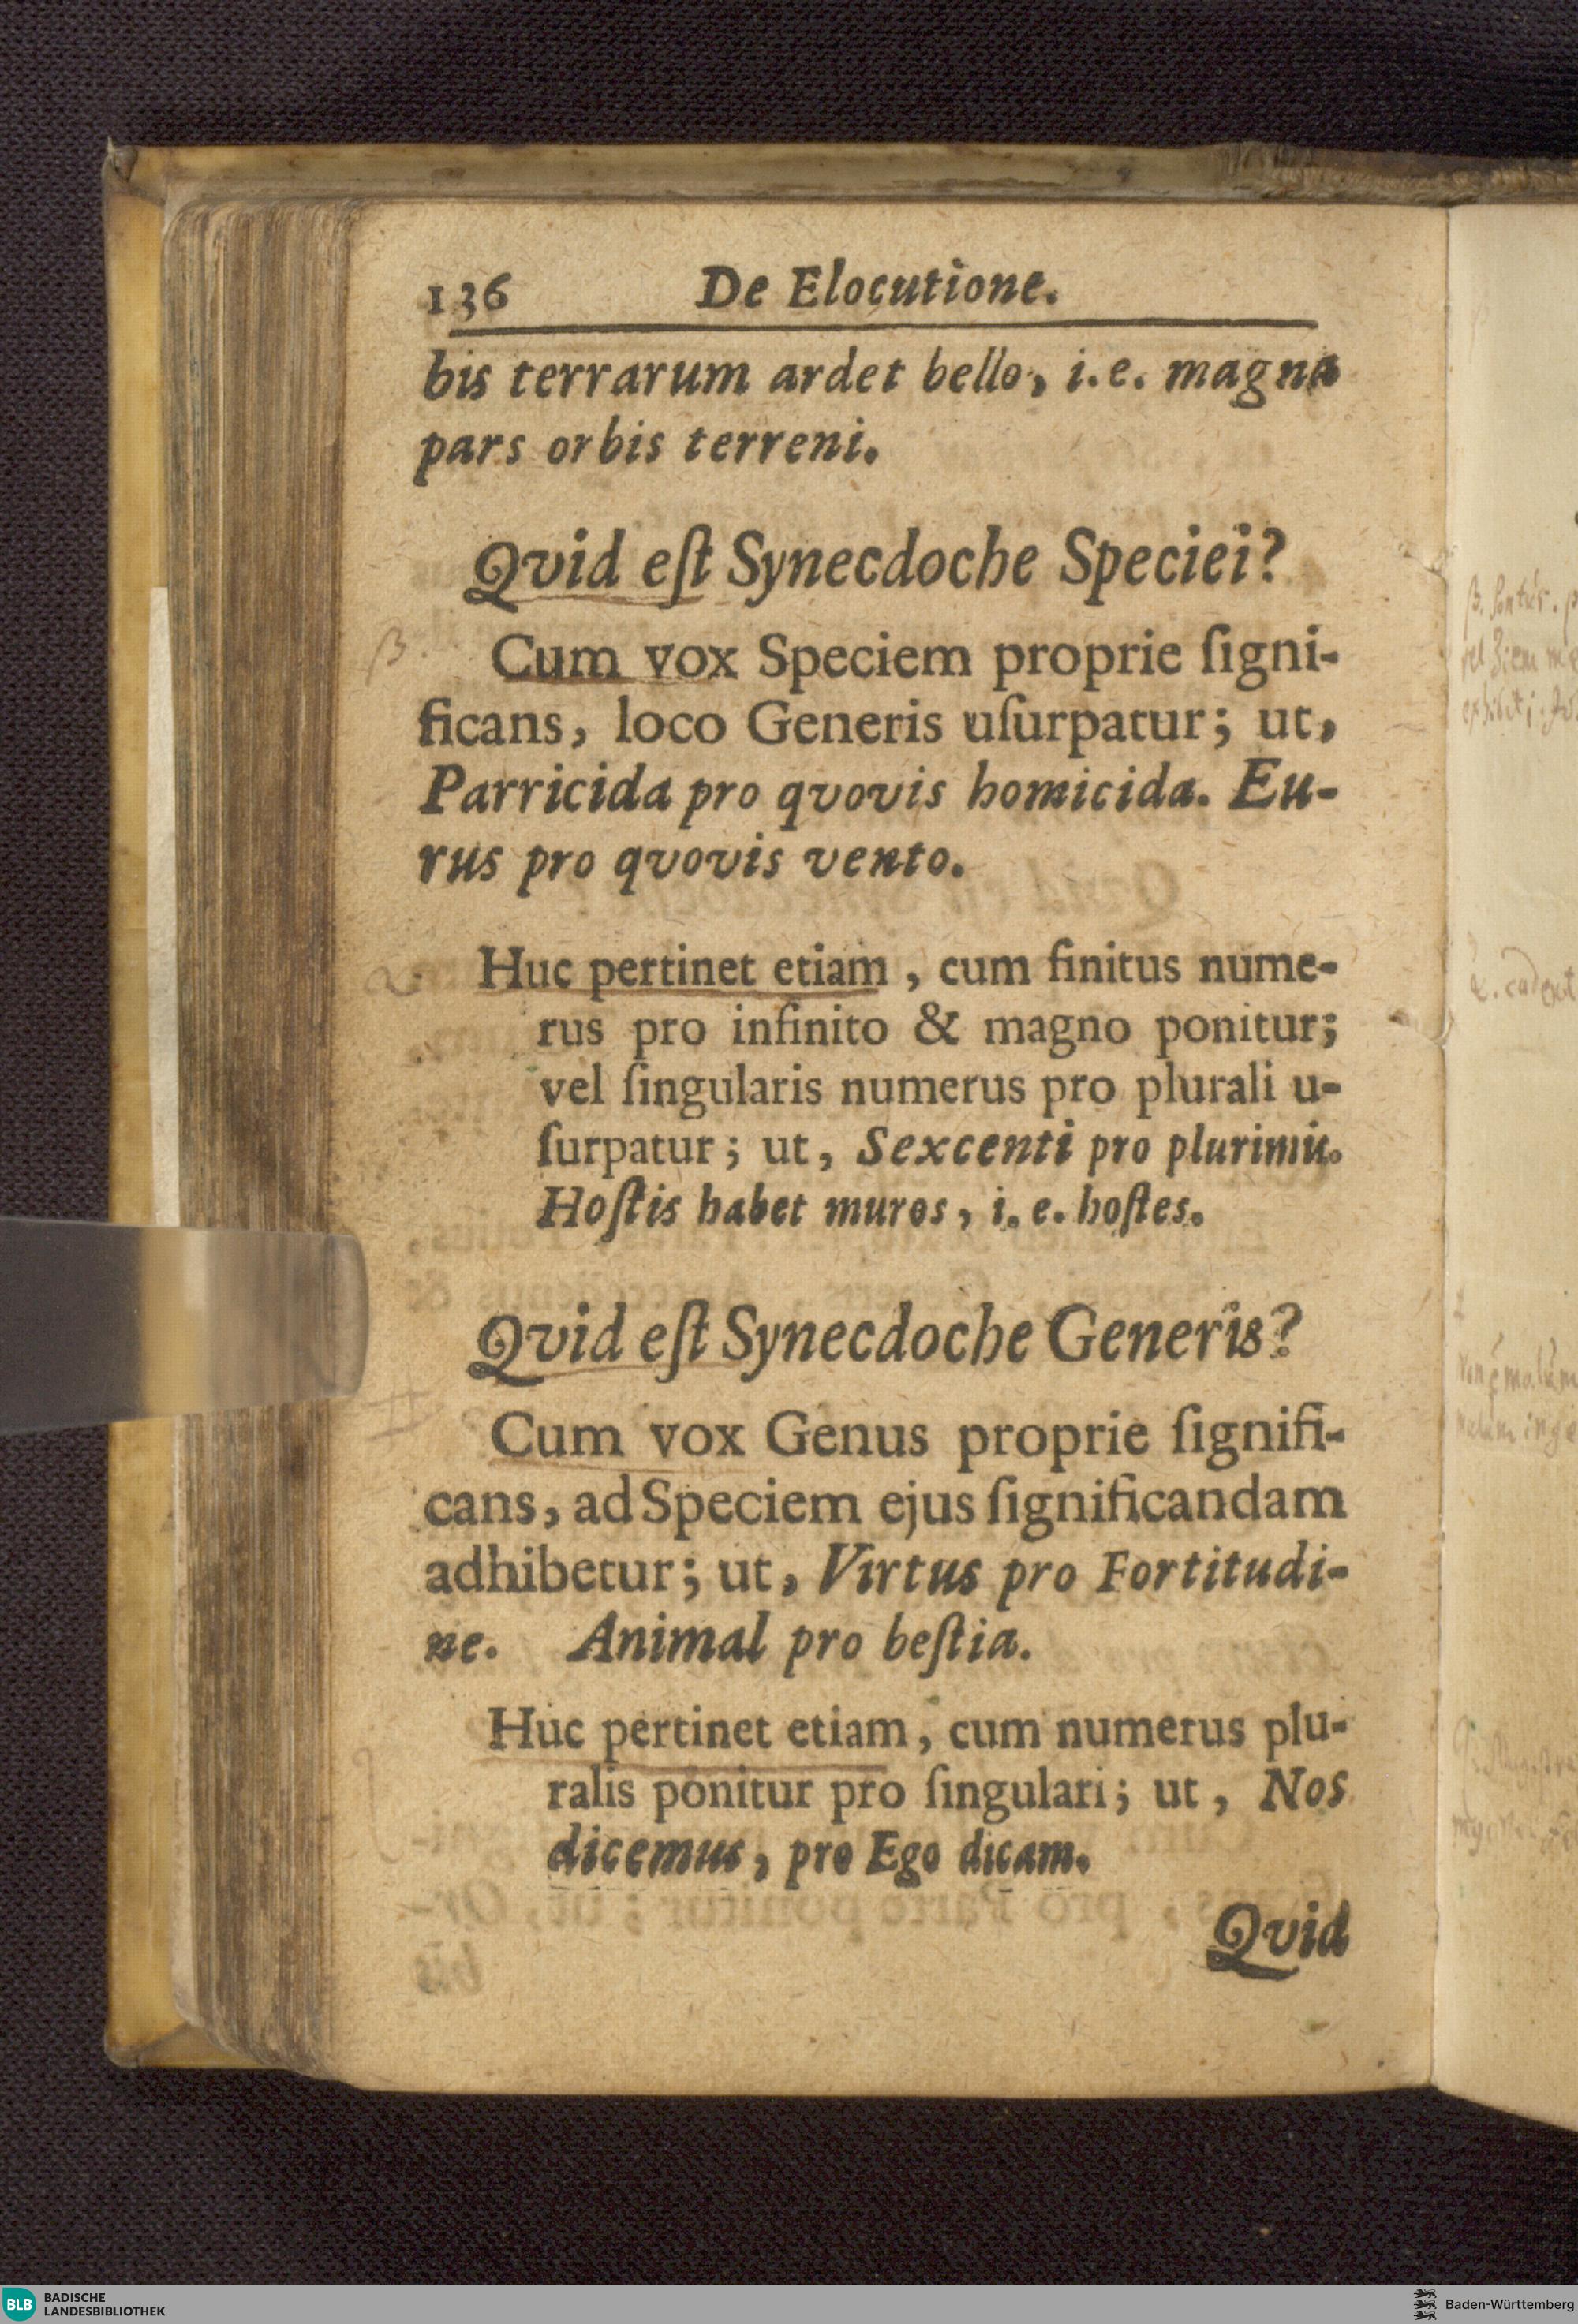 136 De Elocutione.
bis terrarum ardet bello, i.e. magna
pars orbis terreni.
Qvid eſt Synecdoche Speciei?
Cum vox Speciem proprie ſigni-
ficans, loco Generis uſurpatur; ut,
Parricida pro qvovis homicida. Eu-
rus pro qvovis vento.
Huc pertinet etiam, cum finitus nume-
rus pro infinito & magno ponitur;
vel ſingularis numerus pro plurali u-
ſurpatur; ut, Sexcenti pro plurimis.
Hoſtis habet muros, i. e. hoſtes.
Qvid eſt Synecdoche Generis?
Cum vox Genus proprie ſignifi-
cans, ad Speciem ejus ſignificandam
adhibetur; ut, Virtus pro Fortitudi-
ne. Animal pro beſtia.
Huc pertinet etiam, cum numerus plu-
ralis ponitur pro ſingulari; ut, Nos
dicemus, pro Ego dicam.
Qvid
BLB BADISCHE
LANDESBIBLIOTHEK
Baden-Württemberg